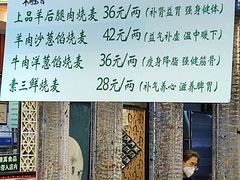 上品羊后腿肉烧麦 36元/两 (补肾益胃 强身健体)
羊肉沙葱馅烧麦 42元/两 (益气补虚 温中暖下)
牛肉洋葱馅烧麦 36元/两 (瘦身降脂 强健筋骨)
素三鲜烧麦 28元/两 (补气养心 滋养脾胃)